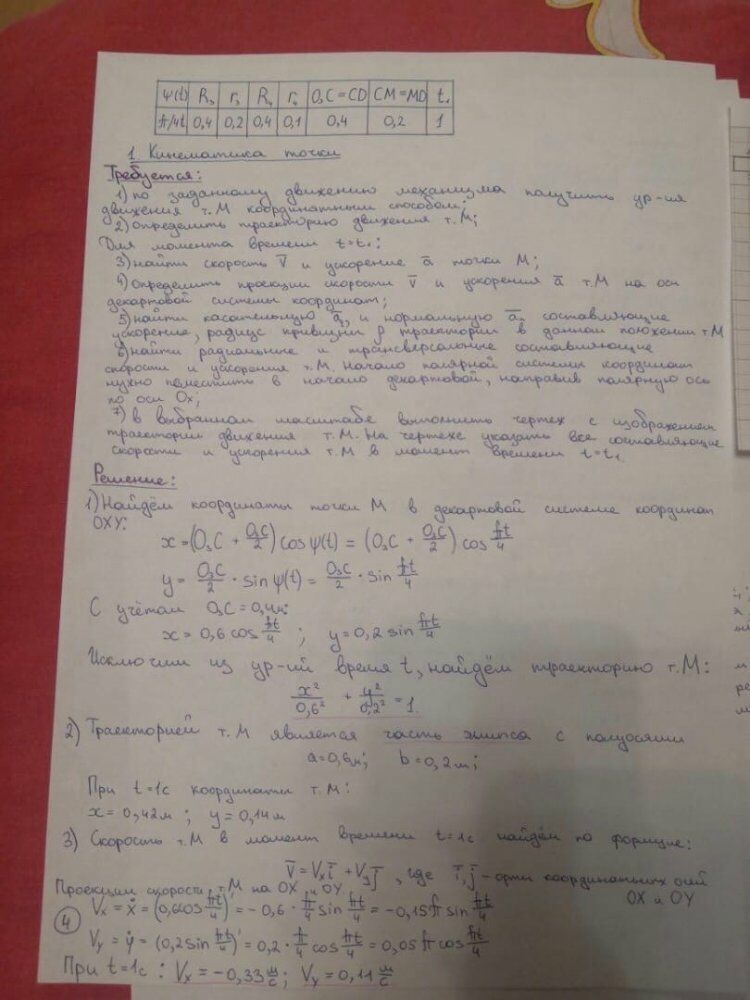 ψ(t) R₃ r₃ R₄ r₄ O₃C=CD CM=MD t₁
π/4t 0,4 0,2 0,4 0,1 0,4 0,2 1
1. Кинематика точки
Требуется:
1) по заданному движению механизма получить ур-ия
движения т.М координатным способом;
2) определить траекторию движения т.М;
Для момента времени t=t₁:
3) найти скорость V̅ и ускорение a̅ точки М;
4) Определить проекции скорости V̅ и ускорения a̅ т.М на оси
декартовой системы координат;
5) найти касательную и нормальную a̅ₙ составляющие
ускорение, радиус кривизны ρ траектории в данном положении т.М
6) найти радиальные и трансверсальные составляющие
скорости и ускорения т.М. Начало полярной системы координат
нужно поместить в начало декартовой, направив полярную ось
по оси Ox;
7) в выбранном масштабе выполнить чертеж с изображением
траектории движения т.М. На чертеже указать все составляющие
скорости и ускорения т.М в момент времени t=t₁.
Решение:
1) Найдём координаты точки М в декартовой системе координат
OXY:
x=(O₃C + O₃C/2) cos ψ(t) = (O₃C + O₃C/2) cos πt/4
y = O₃C/2 · sin ψ(t) = O₃C/2 · sin πt/4
С учётом O₃C=0,4м:
x = 0,6 cos πt/4 ; y = 0,2 sin πt/4
Исключим из ур-ий время t, найдём траекторию т.М:
x²/0,6² + y²/0,2² = 1.
2) Траекторией т.М является часть эллипса с полуосями
a=0,6м; b=0,2м;
При t=1c координаты т.М:
x = 0,42м ; y = 0,14м
3) Скорость т.М в момент времени t=1c найдём по формуле:
V̅ = Vₓi̅ + Vᵧj̅ , где i̅, j̅ - орты координатных осей
OX и OY
Проекции скорости т.М на OX и OY
Vₓ = ẋ = (0,6cos πt/4)' = -0,6 · π/4 sin πt/4 = -0,15π sin πt/4
4
Vᵧ = ẏ = (0,2 sin πt/4)' = 0,2 · π/4 cos πt/4 = 0,05π cos πt/4
При t=1c : Vₓ = -0,33 м/с ; Vᵧ = 0,11 м/с